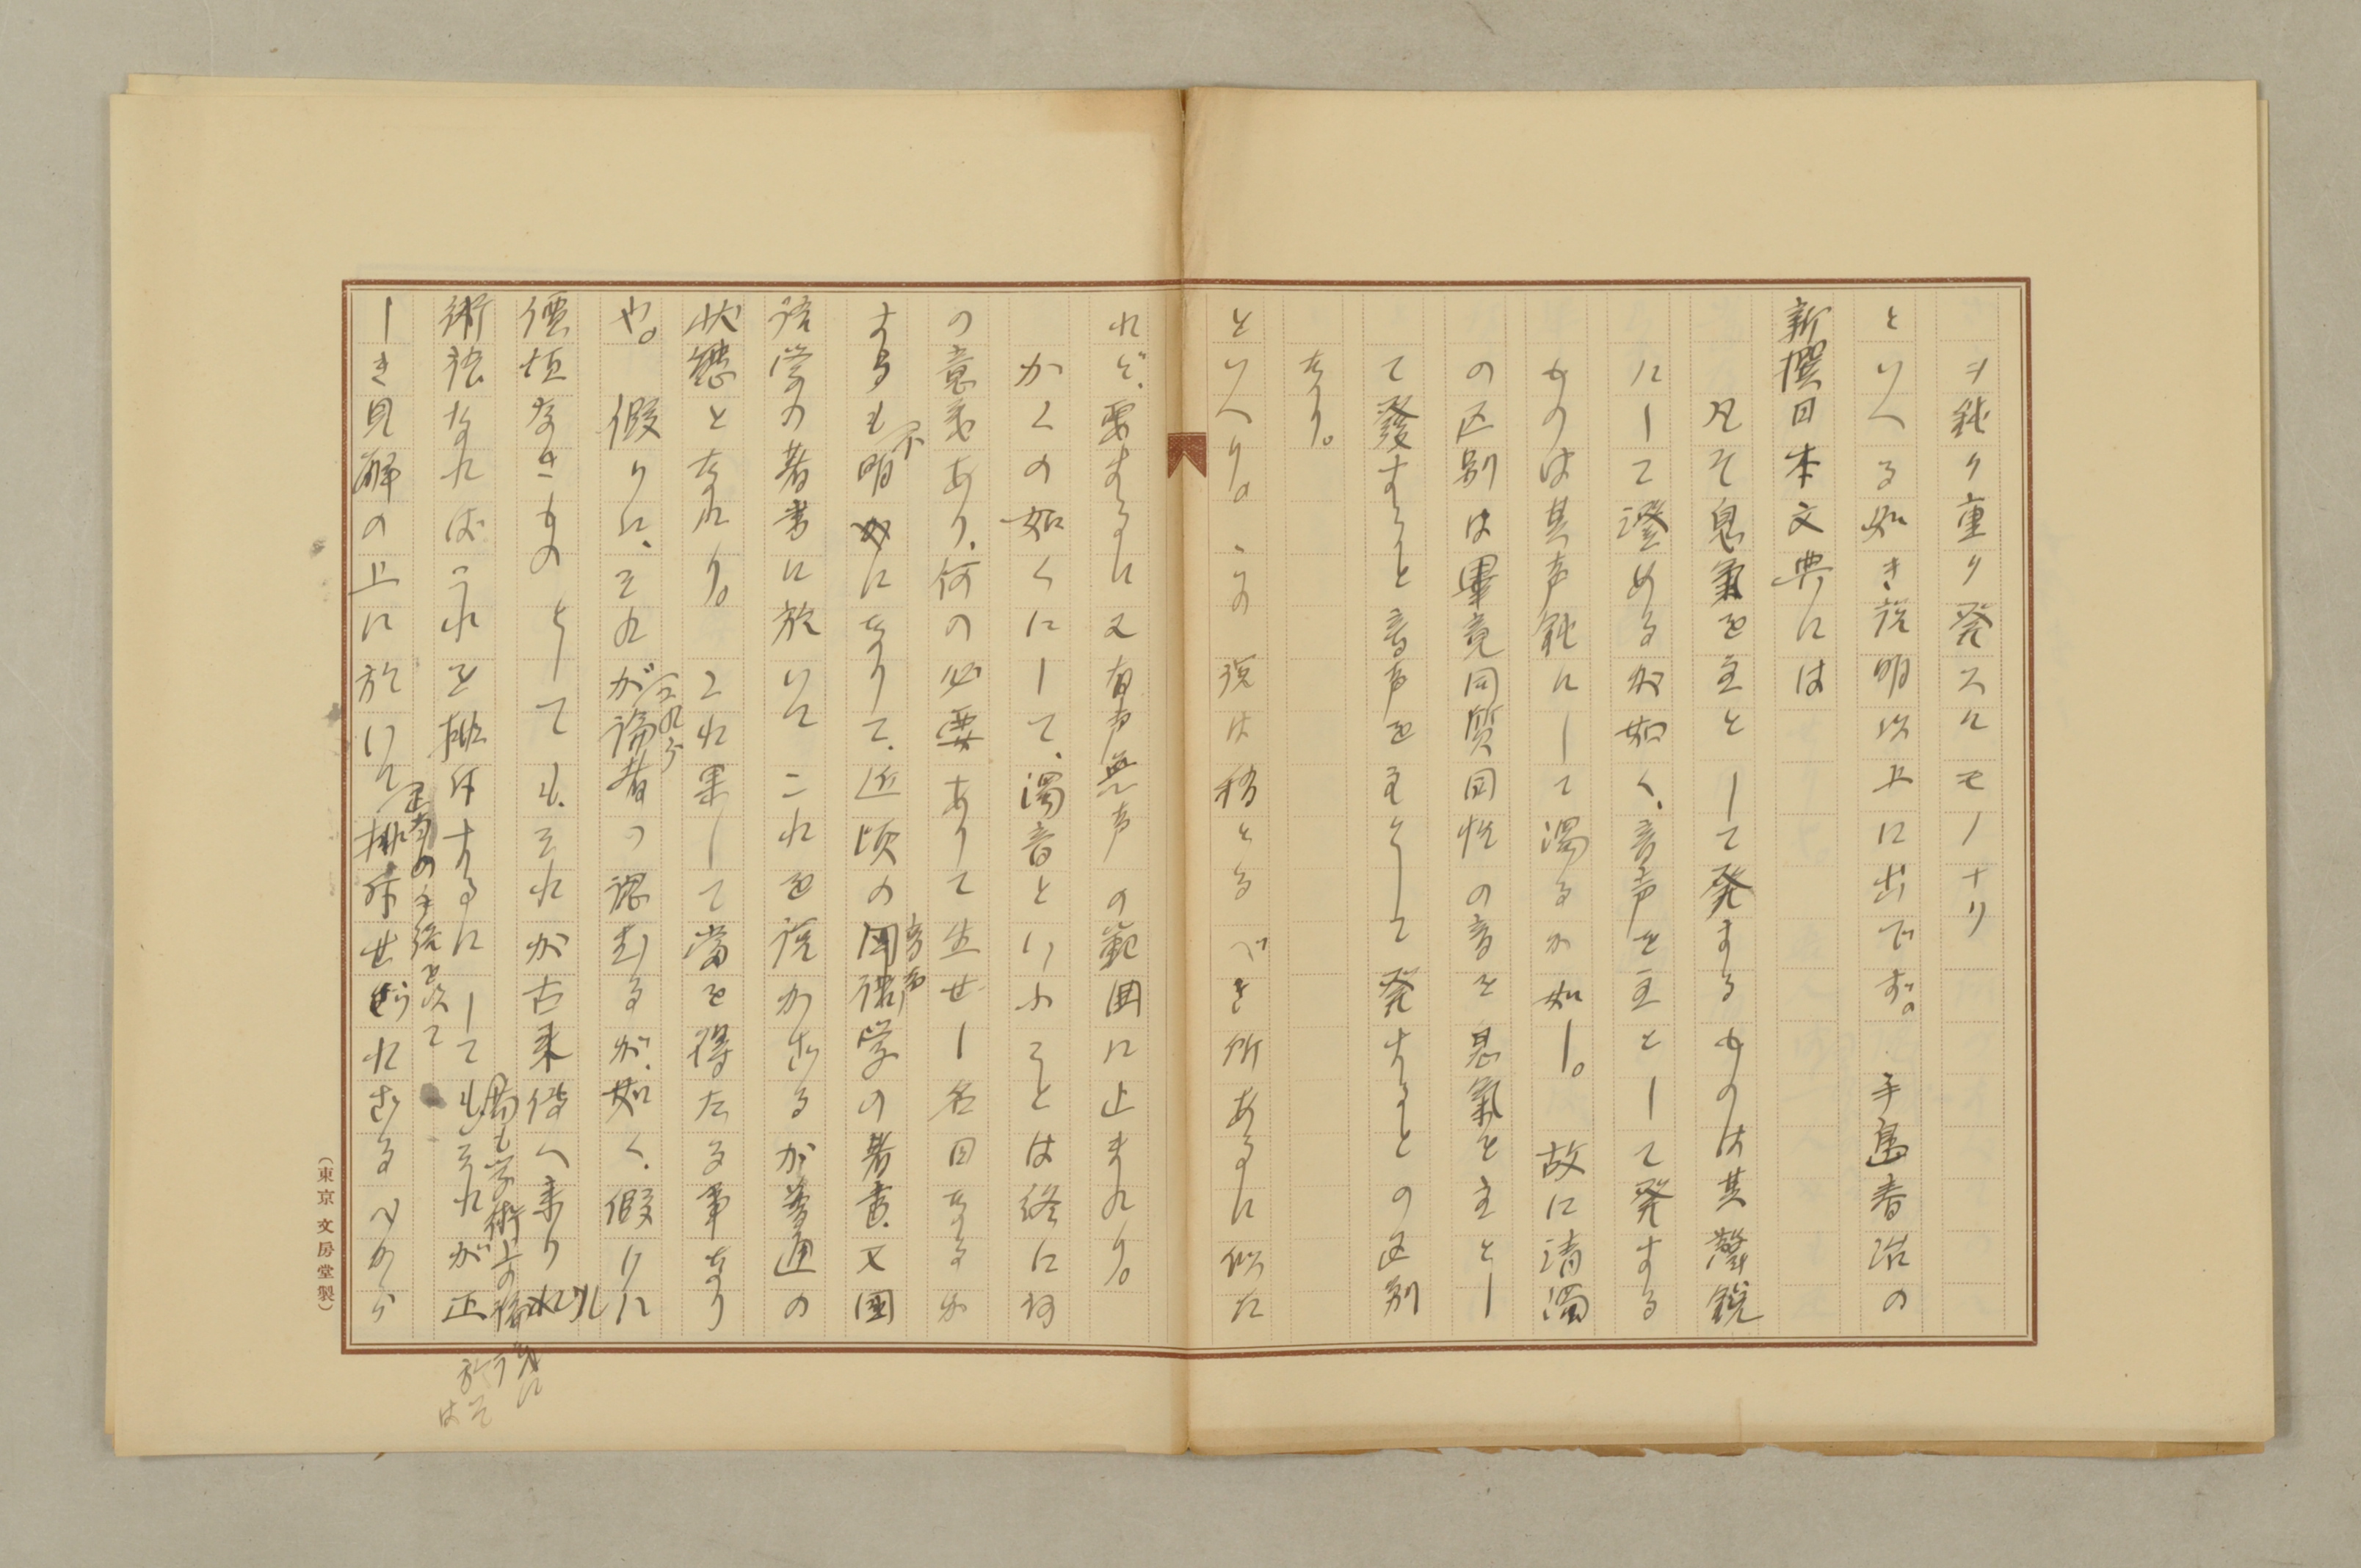 ヲ鈍リ重リ発スルモノナリ
といへる如き説明以上に出でず。手島春治の
新撰日本文典には
凡そ息氣を主として発するものは其聲鋭
にして澄めるが如く、音声を主として発する
ものは其声鈍にして濁るが如し。故に清濁
の区別は畢竟同質同性の音を息氣を主とし
て發すると音声を主として発するとの区別
なり。
といへり。この説は稍とるべき所あるに似た
れど、要するに又有声無声の範囲に止まれり。
かくの如くにして、濁音といふことは終に何
の意義あり、何の必要ありて生せし名目なるか
するも不明になりて、近頃の音声学の著書、又国
語学の著書に於いてこれを説かざるが普通の
状態となれり。これ果して當を得たる事なり
や。假りに、それが論者の認むるが如く、假りに
價値なきものとしても、それが古来使ヘ来りし
術語なればこれを排斥するにしても、それが正
しき見解の上に於いて排斥せられざるべから
苟も学術上の論議に於ては
正当の手続を以て
(東京 文房堂製)